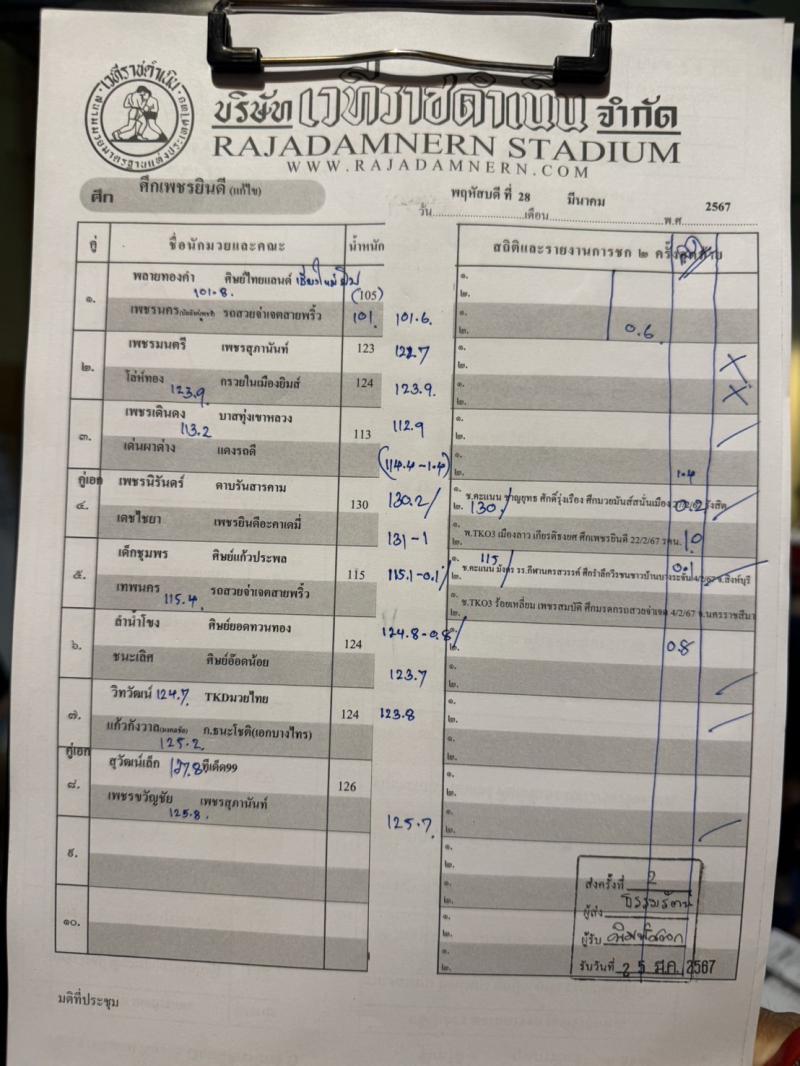 เวทีราชดำเนิน
บริษัท เวทีราชดำเนิน จำกัด
RAJADAMNERN STADIUM
WWW.RAJADAMNERN.COM
ศึก ศึกเพชรยินดี (แก้ไข)
พฤหัสบดี ที่ 28 มีนาคม 2567
วัน เดือน พ.ศ
คู่ ชื่อนักมวยและคณะ น้ำหนัก สถิติและรายงานการชก ๒ ครั้งสุดท้าย
๑. พลายทองคำ ศิษย์ไทยแลนด์ (105) ๑. ๒.
101.8.
เพชรนคร รถสวยจ่าเจตสายพริ้ว 101. 101.6. ๑. ๒. 0.6
๒. เพชรมนตรี เพชรสุภานันท์ 123 122.7 ๑. ๒. X
โล่ห์ทอง 123.9. กรวยในเมืองยิมส์ 124 123.9. ๑. ๒. X
๓. เพชรเดินดง บาสทุ่งเขาหลวง 113 112.9 ๑. ๒.
113.2
เด่นผาด่าง แดงรถดี (114.4-1.4) ๑. ๒. 1.4
คู่เอก
๔. เพชรนิรันดร์ ดาบรันสารคาม 130 130.2/ ๑. ๒. 130 0.2
เดชไชยา เพชรยินดีอะคาเดมี่ 131-1 ๑. ๒. พ.TKO3 เมืองลาว เกียรติธงยศ ศึกเพชรยินดี 22/2/67 รดน. 1.0
๕. เด็กชุมพร ศิษย์แก้วประพล 115 115.1-0.1/ ๑. ๒. 115 0.1
เทพนคร 115.4 รถสวยจ่าเจตสายพริ้ว ๑. ๒. ช.TKO3 ร้อยเหลี่ยม เพชรสมบัติ ศึกมรดกรถสวยจ่าเจต 4/2/67 จ.นครราชสีมา
๖. ลำน้ำโขง ศิษย์ยอดทวนทอง 124 124.8-0.8/ ๑. ๒. 0.8
ชนะเลิศ ศิษย์อ๊อดน้อย 123.7 ๑. ๒.
๗. วิทวัฒน์ 124.7 TKDมวยไทย 124 123.8 ๑. ๒.
แก้วกังวาล ก.ธนะโชติ(เอกบางไทร) ๑. ๒.
125.2
คู่เอก
๘. สุวัฒน์เล็ก 127.8 ทีเด็ด99 126 ๑. ๒.
เพชรขวัญชัย เพชรสุภานันท์ 125.7 ๑. ๒.
125.8.
๙. ๑. ๒.
๑. ๒.
๑๐. ๑. ๒.
๑. ๒.
ส่งครั้งที่ 2
ผู้ส่ง
ผู้รับ
รับวันที่ 25 มี.ค. 2567
มติที่ประชุม